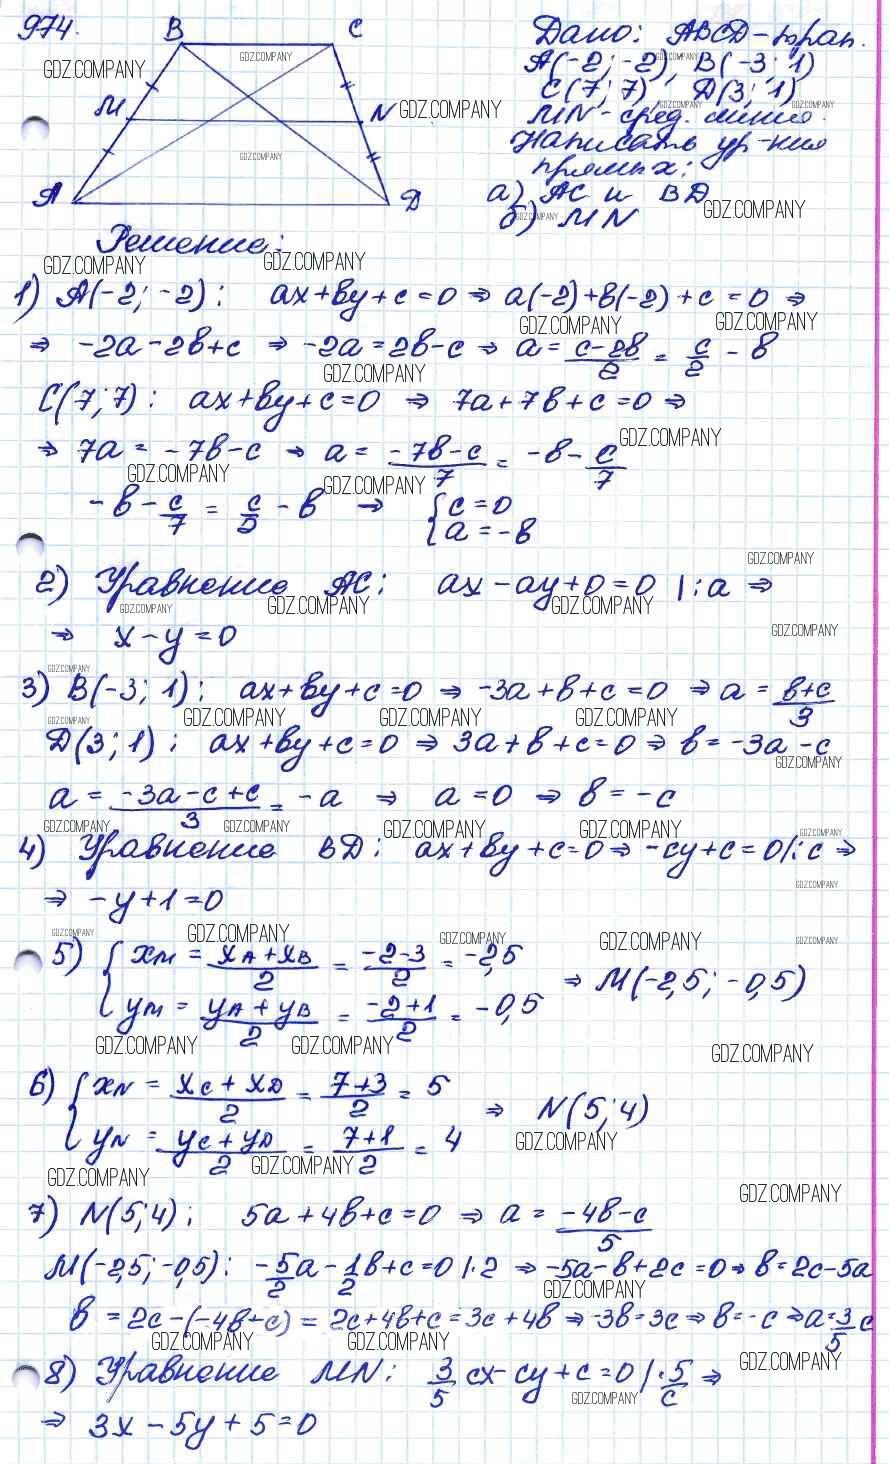 974.
B C
M N
A D
Дано: ABCD-трап.
A(-2; -2), B(-3; 1)
C(7; 7), D(3; 1)
MN-сред. линия.
Написать ур-ния
прямых:
а) AC и BD
б) MN
Решение:
1) A(-2; -2): ax+by+c=0 ⇒ a(-2)+b(-2)+c=0 ⇒
⇒ -2a-2b+c ⇒ -2a=2b-c ⇒ a = (c-2b)/2 = c/2 - b
C(7; 7): ax+by+c=0 ⇒ 7a+7b+c=0 ⇒
⇒ 7a = -7b-c ⇒ a = (-7b-c)/7 = -b - c/7
-b - c/7 = c/2 - b ⇒ { c=0
a=-b
2) Уравнение AC: ax-ay+0=0 |:a ⇒
⇒ x-y=0
3) B(-3; 1): ax+by+c=0 ⇒ -3a+b+c=0 ⇒ a = (b+c)/3
D(3; 1): ax+by+c=0 ⇒ 3a+b+c=0 ⇒ b=-3a-c
a = (-3a-c+c)/3 = -a ⇒ a=0 ⇒ b=-c
4) Уравнение BD: ax+by+c=0 ⇒ -cy+c=0/:c ⇒
⇒ -y+1=0
5) { xM = (xA+xB)/2 = (-2-3)/2 = -2,5 ⇒ M(-2,5; -0,5)
yM = (yA+yB)/2 = (-2+1)/2 = -0,5
6) { xN = (xC+xD)/2 = (7+3)/2 = 5 ⇒ N(5; 4)
yN = (yC+yD)/2 = (7+1)/2 = 4
7) N(5; 4): 5a+4b+c=0 ⇒ a = (-4b-c)/5
M(-2,5; -0,5): -5/2a - 1/2b+c=0 |·2 ⇒ -5a-b+2c=0 ⇒ b=2c-5a
b = 2c-(-4b-c) = 2c+4b+c = 3c+4b ⇒ -3b=3c ⇒ b=-c ⇒ a=3/5c
8) Уравнение MN: 3/5 cx-cy+c=0 |·5/c ⇒
⇒ 3x-5y+5=0
GDZ.COMPANY